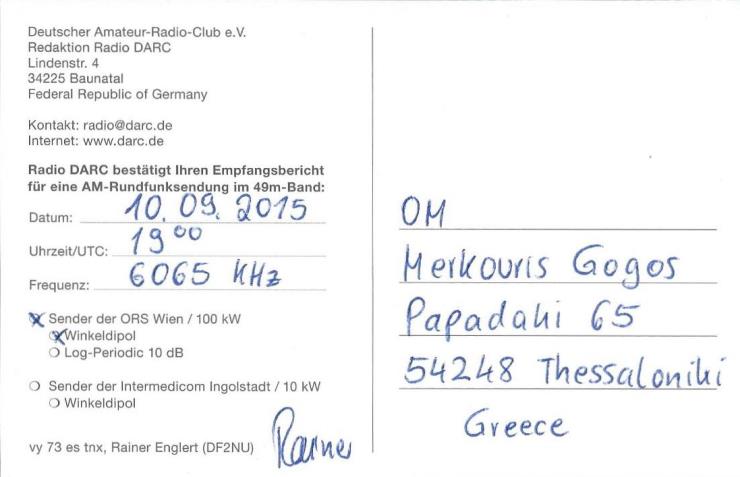 Deutscher Amateur-Radio-Club e.V.
Redaktion Radio DARC
Lindenstr. 4
34225 Baunatal
Federal Republic of Germany
Kontakt: radio@darc.de
Internet: www.darc.de
Radio DARC bestätigt Ihren Empfangsbericht
für eine AM-Rundfunksendung im 49m-Band:
Datum: 10.09.2015
Uhrzeit/UTC: 19 00
Frequenz: 6065 KHz
Sender der ORS Wien / 100 kW
Winkeldipol
Log-Periodic 10 dB
Sender der Intermedicom Ingolstadt / 10 kW
Winkeldipol
vy 73 es tnx, Rainer Englert (DF2NU) Rainer
OM
Merkouris Gogos
Papadaki 65
54248 Thessaloniki
Greece